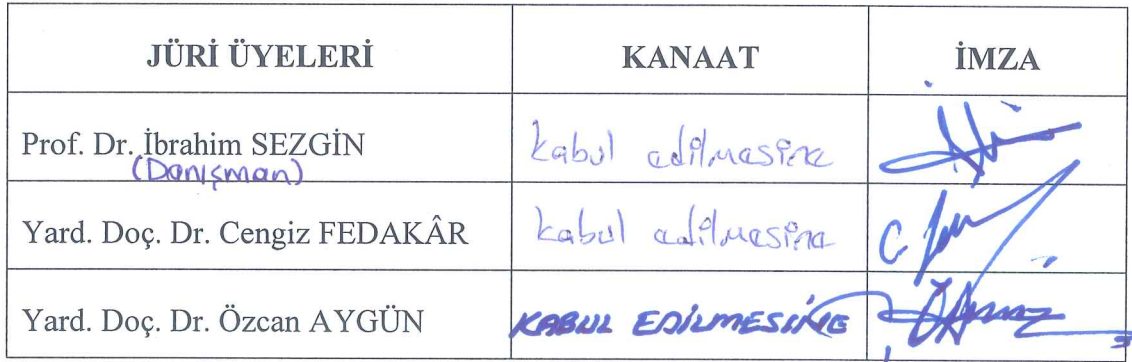 JÜRİ ÜYELERİ KANAAT İMZA
Prof. Dr. İbrahim SEZGİN kabul edilmesine
(Danışman)
Yard. Doç. Dr. Cengiz FEDAKÂR kabul edilmesine
Yard. Doç. Dr. Özcan AYGÜN KABUL EDİLMESİNE